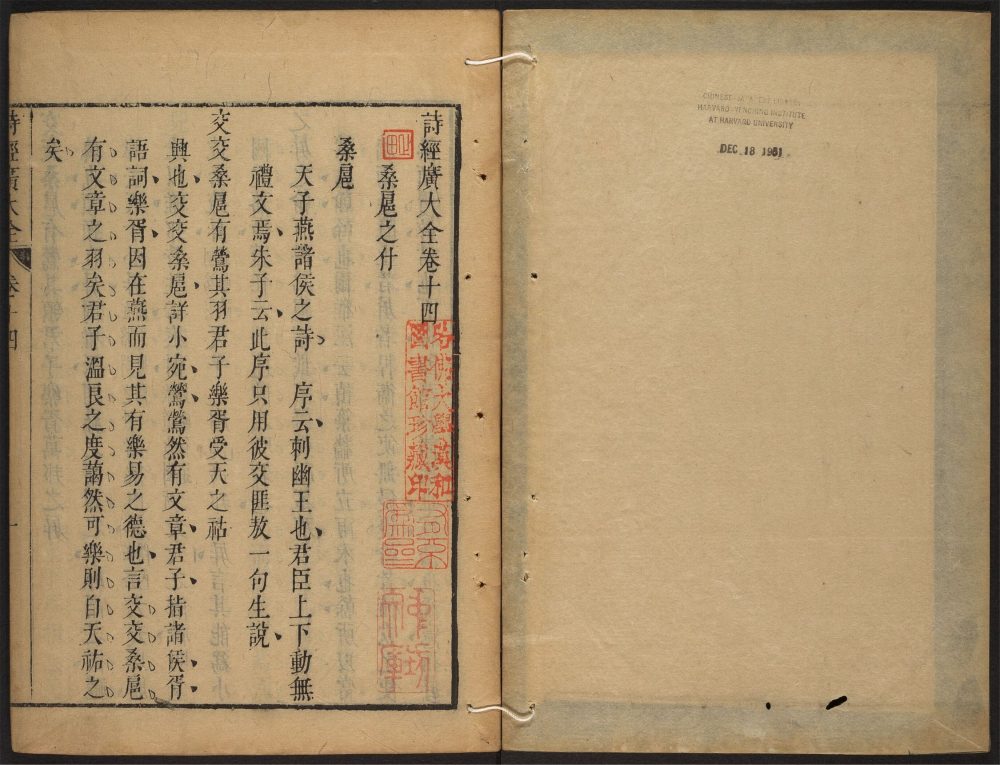 詩經廣大全卷十四
桑扈之什
桑扈
天子燕諸侯之詩序云刺幽王也君臣上下動無
禮文焉朱子云此序只用彼交匪敖一句生說
交交桑扈有鶯其羽君子樂胥受天之祜
興也交交桑扈詳小宛鶯鶯然有文章君子指諸侯胥
語詞樂胥因在燕而見其有樂易之德也言交交桑扈
有文章之羽矣君子溫良之度藹然可樂則自天祐之
矣
詩經廣大全 卷十四 一
哈佛大學漢和
圖書館珍藏印
CHINESE-JAPANESE LIBRARY
HARVARD-YENCHING INSTITUTE
AT HARVARD UNIVERSITY
DEC 18 1951